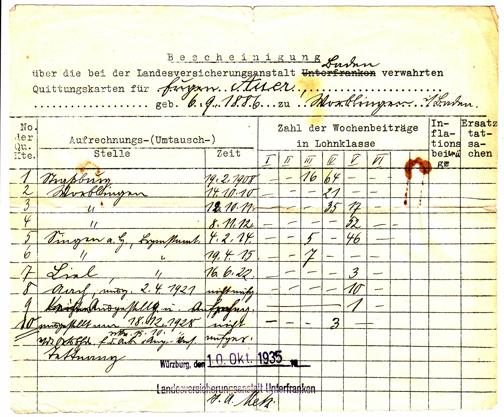 Bescheinigung
Baden
über die bei der Landesversicherungsanstalt Unterfranken verwahrten
Quittungskarten für Eugen Auer
geb. 6.9.1886 zu Worblingen /Baden.
No. der Qu. Kte.
Aufrechnungs-(Umtausch-)
Stelle Zeit
Zahl der Wochenbeiträge in Lohnklasse
I II III IV V VI
Inflationsbeiträge
Ersatztatsachen
1 Straßburg 19.2.1908 – – 16 64 – –
2 Worblingen 14.10.10 – – – 21 – –
3 " 12.10.11. – – – 35 17
4 " 8.11.12. – – – – 32
5 Singen a.H., 4.2.14. – – 5 – 46
6 " " 19.4.15. – – 7 – –
7 Kiel, " 16.6.22. – – – – 3
8 2.4.1921 – – – – 10
9 – – – – 1
10 ausgestellt am 18.12.1928 nicht – – – 3
Tettnang
Würzburg, den 10. Okt. 1935
Landesversicherungsanstalt Unterfranken